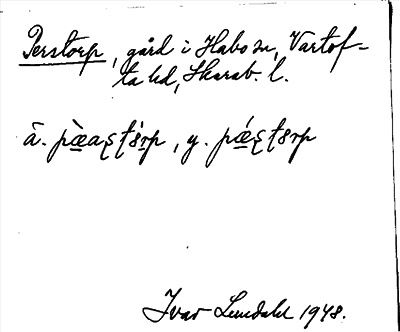 Perstorp, gård i Habo sn, Vartof-
ta hd, Skarab. l.
ä. pæ̀aʂʈȣ̀rp, y. pǽʂʈȣrp
Ivar Lundahl 1948.